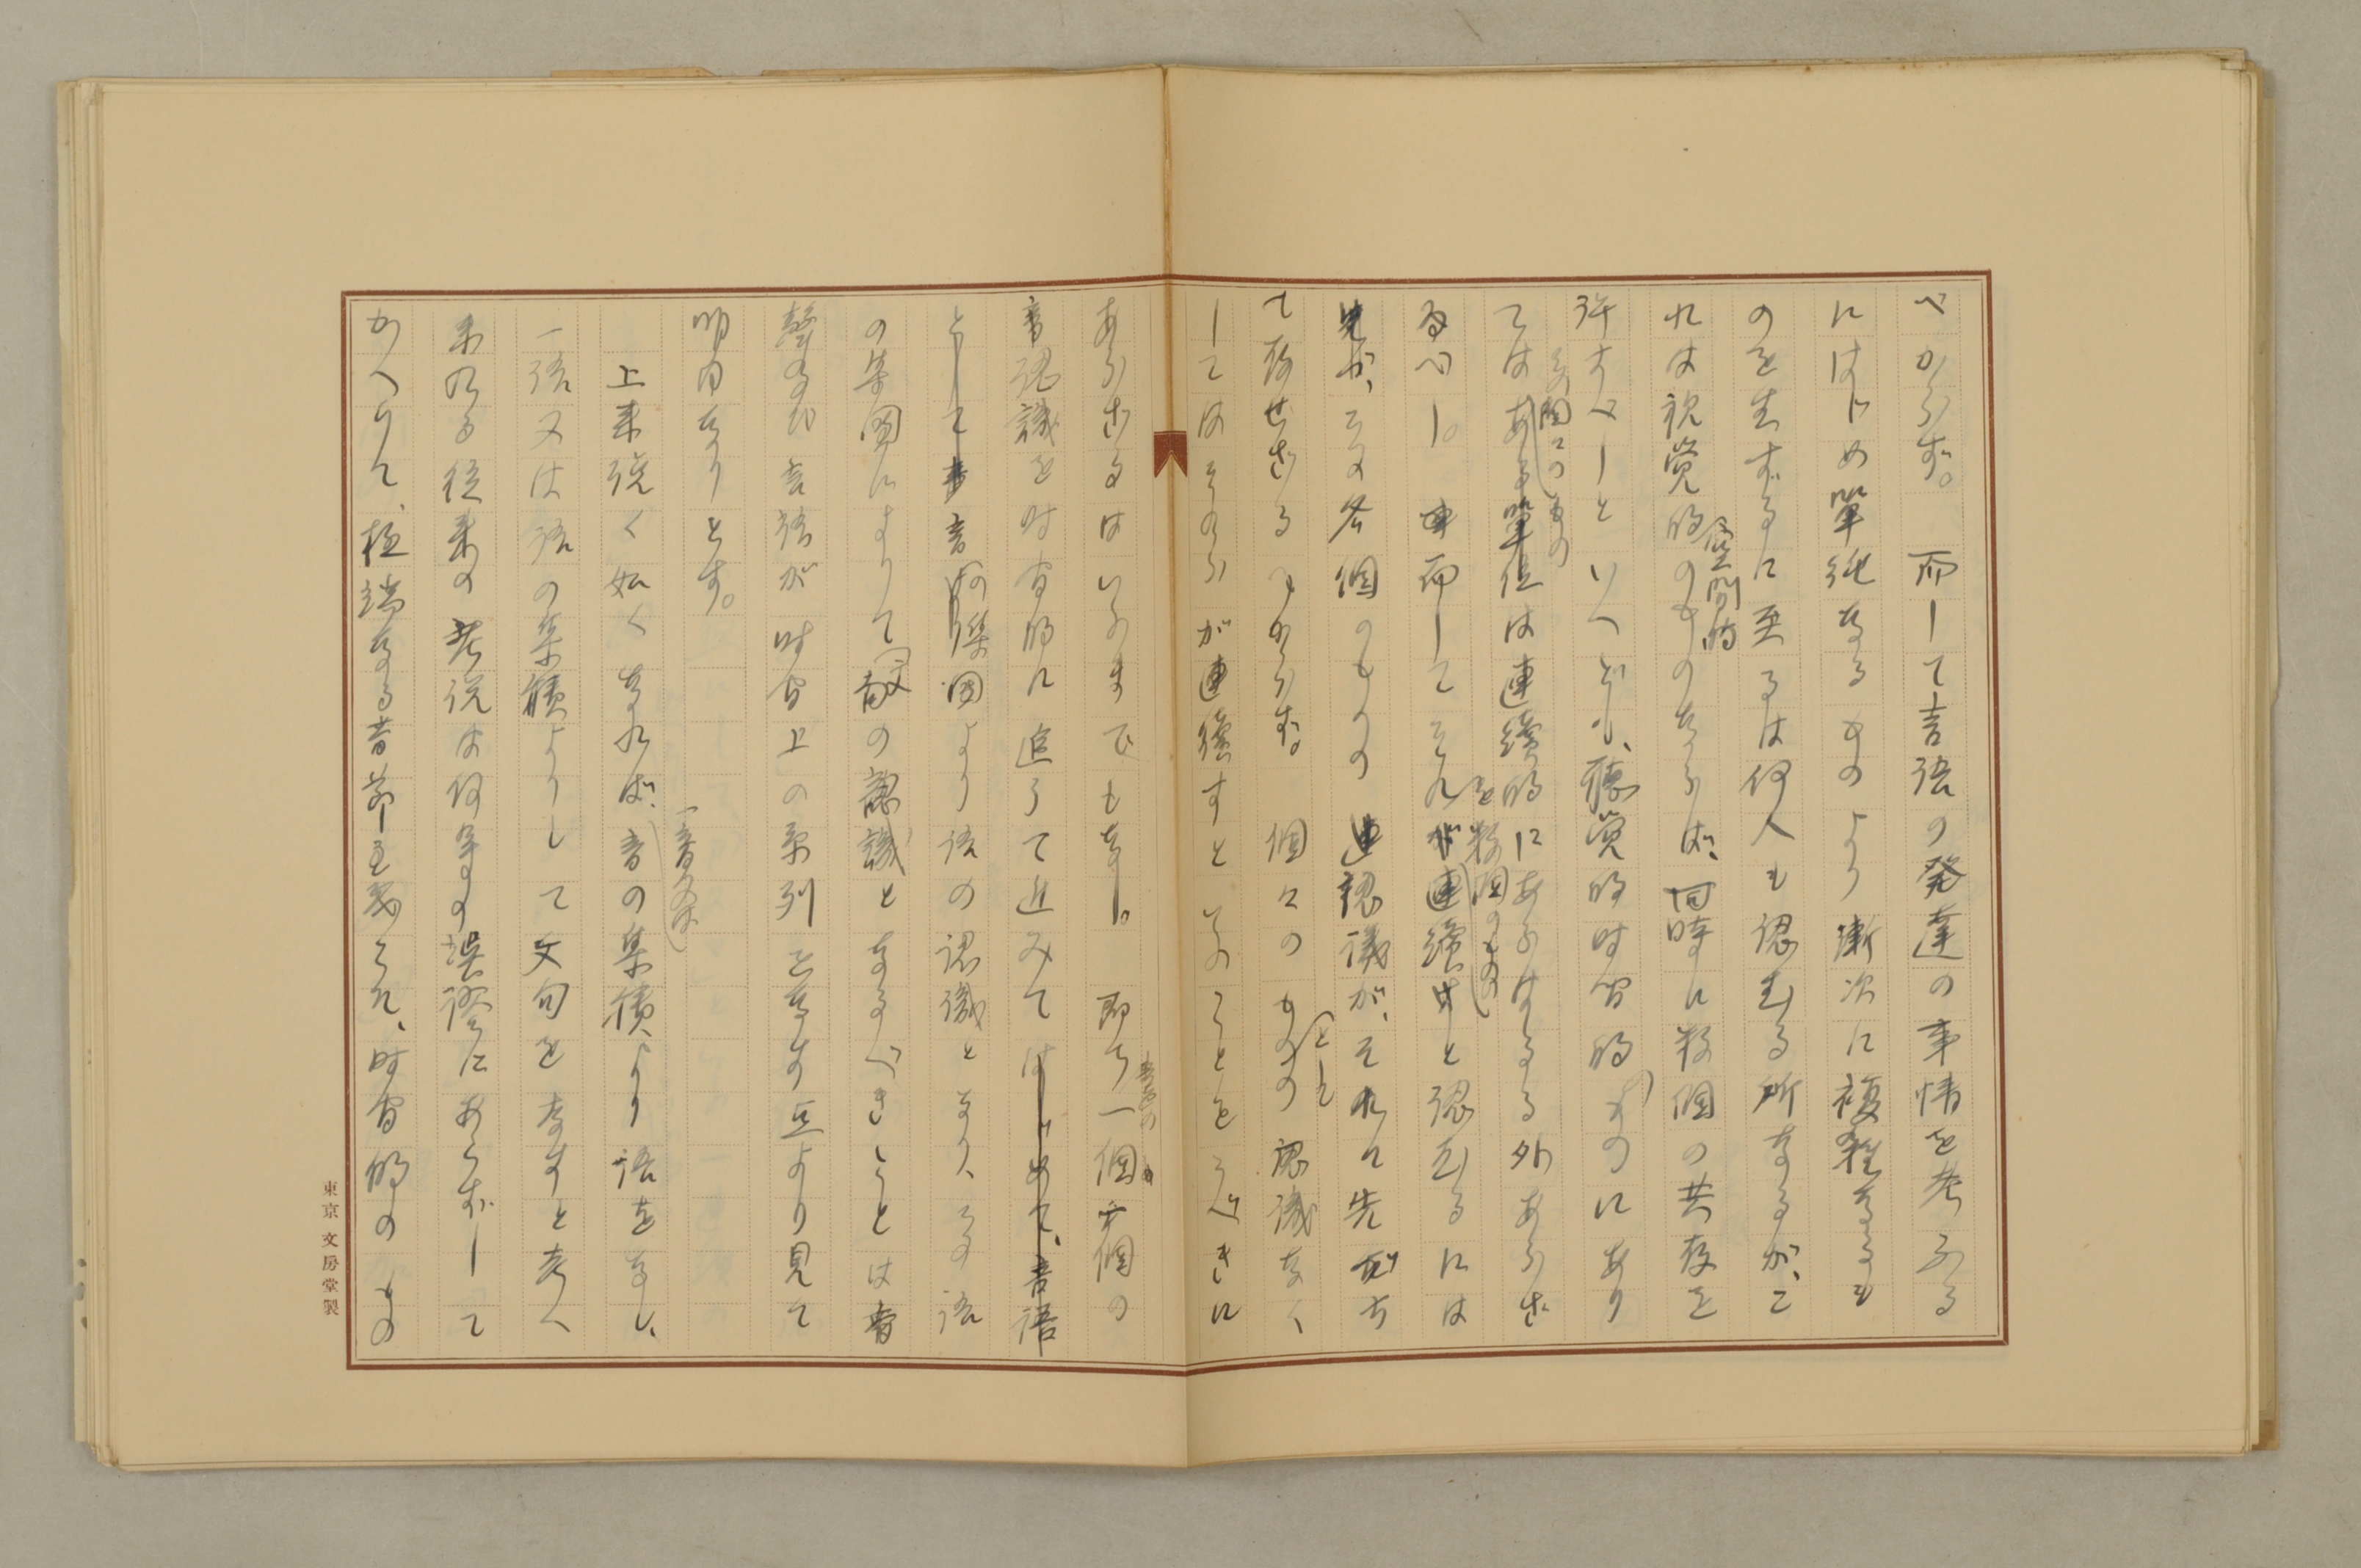 べからず。而して言語の発達の事情を考ふる
にはじめ單純なるものより漸次に複雑なるも
のを生ずるに至るは何人も認むる所なるが、こ
れは視覚的
空間的
のものならば、同時に数個の共存を
許すべしといへども、聴覚的時間的のものにあり
ては
数個のもの
ある單位は連續的にあらはるる外あらざ
るべし。而してそれ
を数個のもの
が連續せと認むるには
先が、その各個のものの認識が、それに先だち
て存せざるべからず。個々のもの
として
の認識なく
してはそれらが連續すといふことをうべきに
あらざるはいふまでもなし。即ち一個一個の
音認識を時間的に追うて近みてはじめて、言語
として音の集團より語の認識となり、その語
の集團によりて
文
の認識となるべきことは音
聲及び言語が時間上の系列をなす点より見て
明白なりとす。
上来説く如くなれば、音の集積より語をなし、
一音又は
一語又は語の集積よりして文句をなすと考へ
来れる従来の考説は何等の誤謬にあらずして
かへりて、極端なる音節主義こそ、時間的のもの
東京 文房堂製